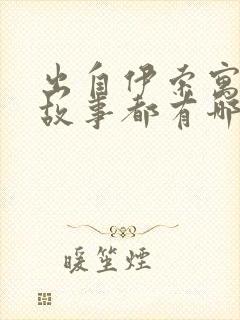 出自伊索寓
故事都有哪
暖笙煙